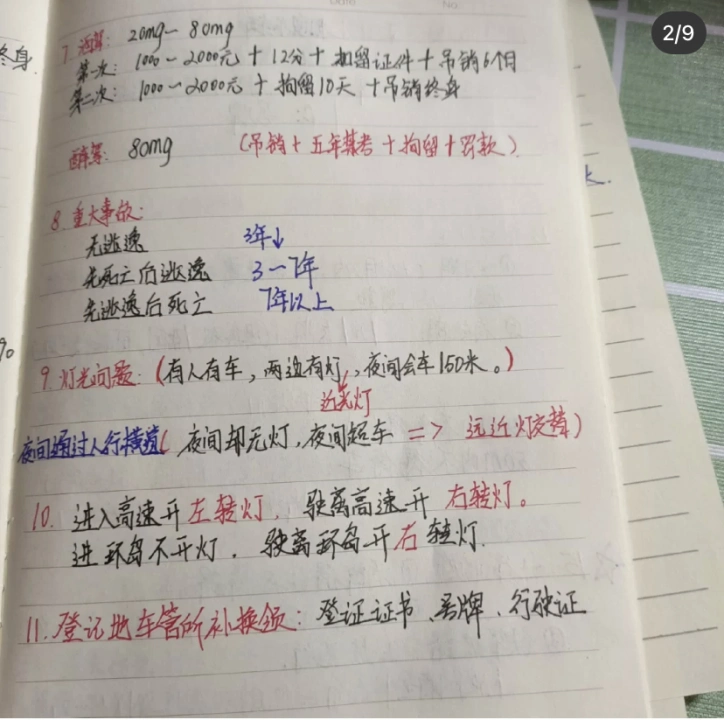 2/9
终身.
7. 酒驾: 20mg－80mg
第一次: 1000－2000元＋12分＋扣留证件＋吊销6个月
第二次: 1000－2000元＋拘留10天＋吊销终身
醉驾: 80mg (吊销＋五年禁考＋拘留＋罚款)
8. 重大事故:
无逃逸 3年↓
先死亡后逃逸 3－7年
先逃逸后死亡 7年以上
9. 灯光问题: (有人有车，两边有灯，夜间会车150米。)
近光灯
夜间通过人行横道( 夜间却无灯，夜间超车 => 远近灯交替)
10. 进入高速开左转灯. 驶离高速开右转灯。
进环岛不开灯. 驶离环岛开右转灯.
11. 登记地车管所补换领: 登证证书、号牌、行驶证